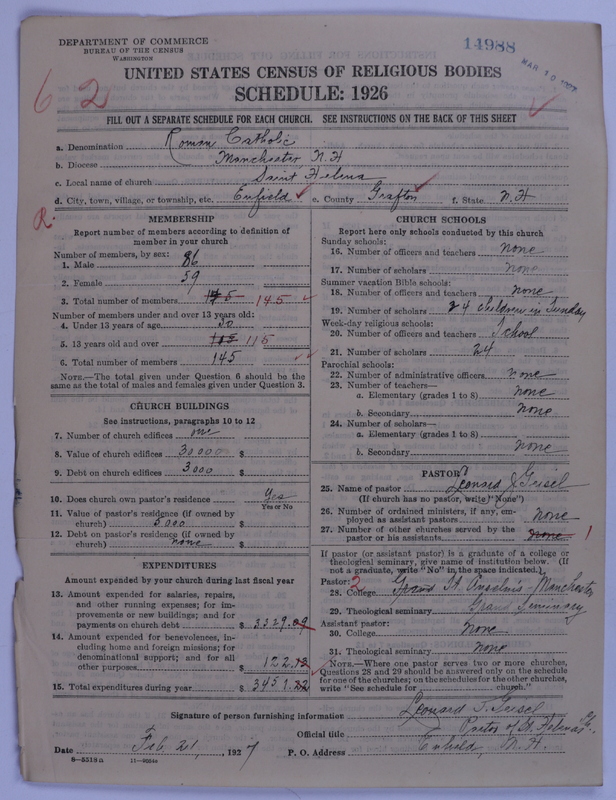 DEPARTMENT OF COMMERCE
BUREAU OF THE CENSUS
WASHINGTON
14988
MAR 10 1927
UNITED STATES CENSUS OF RELIGIOUS BODIES
SCHEDULE: 1926
6 2
FILL OUT A SEPARATE SCHEDULE FOR EACH CHURCH. SEE INSTRUCTIONS ON THE BACK OF THIS SHEET
a. Denomination Roman Catholic
b. Diocese Manchester, N.H
c. Local name of church Saint Helena
d. City, town, village, or township, etc. Enfield e. County Grafton f. State N.H
R.
MEMBERSHIP
Report number of members according to definition of
member in your church
Number of members, by sex:
1. Male 86
2. Female 59
3. Total number of members 145 145
Number of members under and over 13 years old:
4. Under 13 years of age 30
5. 13 years old and over 115
6. Total number of members 145
NOTE.—The total given under Question 6 should be the
same as the total of males and females given under Question 3.
CHURCH BUILDINGS
See instructions, paragraphs 10 to 12
7. Number of church edifices one
8. Value of church edifices 30,000 $
9. Debt on church edifices 3,000 $
10. Does church own pastor's residence Yes
Yes or No
11. Value of pastor's residence (if owned by
church) 5,000 $
12. Debt on pastor's residence (if owned by
church) none $
EXPENDITURES
Amount expended by your church during last fiscal year
13. Amount expended for salaries, repairs,
and other running expenses; for im-
provements or new buildings; and for
payments on church debt $ 3329.09
14. Amount expended for benevolences, in-
cluding home and foreign missions; for
denominational support; and for all
other purposes $ 122.13
15. Total expenditures during year $ 3451.22
CHURCH SCHOOLS
Report here only schools conducted by this church
Sunday schools:
16. Number of officers and teachers none
17. Number of scholars none
Summer vacation Bible schools:
18. Number of officers and teachers none
19. Number of scholars 24 children in Sunday
Week-day religious schools:
20. Number of officers and teachers School
21. Number of scholars 24
Parochial schools:
22. Number of administrative officers none
23. Number of teachers—
a. Elementary (grades 1 to 8) none
b. Secondary none
24. Number of scholars—
a. Elementary (grades 1 to 8)
b. Secondary none
PASTOR
25. Name of pastor Leonard J Geisel
(If church has no pastor, write "None")
26. Number of ordained ministers, if any, em-
ployed as assistant pastors none
27. Number of other churches served by the
pastor or his assistants none 1
If pastor (or assistant pastor) is a graduate of a college or
theological seminary, give name of institution below. (If
not a graduate, write "No" in the space indicated.)
Pastor: 2
28. College St Anselm's - Manchester
29. Theological seminary Grand Seminary
Assistant pastor:
30. College None
31. Theological seminary none
NOTE.—Where one pastor serves two or more churches,
Questions 28 and 29 should be answered only on the schedule
for one of the churches; on the schedules for the other churches,
write "See schedule for church."
Signature of person furnishing information Leonard J. Geisel
Official title Pastor of St. Helena's
Date Feb 21, 1927 P. O. Address Enfield, N.H.
8—5518a 11—9064a